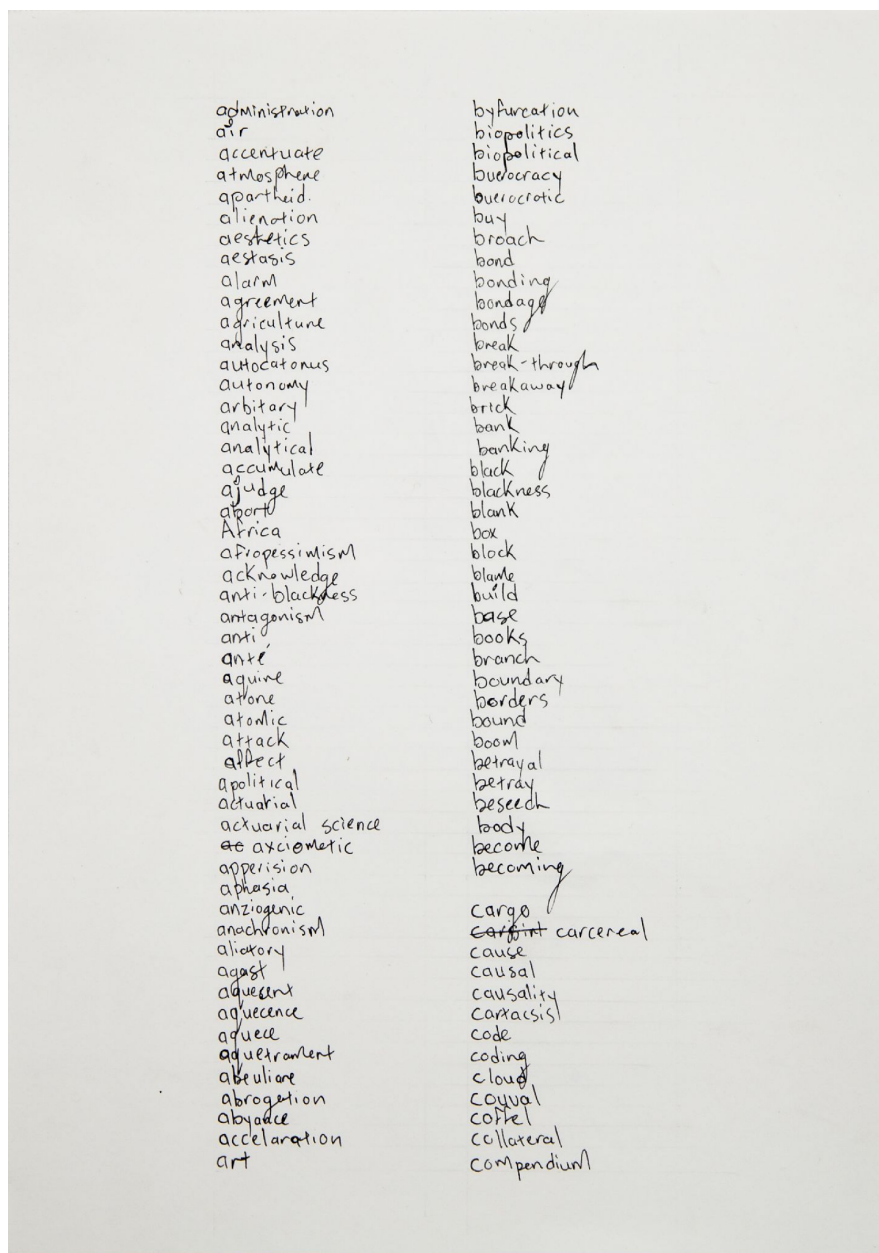 administration
air
accentuate
atmosphene
apartheid.
alienation
aestetics
aestasis
alarm
agreement
agriculture
analysis
autocatonus
autonomy
arbitary
analytic
analytical
accumulate
ajudge
abort
Africa
afropessimism
acknowledge
anti-blackness
antagonism
anti
anté
aquire
atone
atomic
attack
affect
apolitical
actuarial
actuarial science
ae axciometic
apperision
aphasia
anziogenic
anachronism
aliatory
agast
aquecent
aquecence
aquece
aquetrament
abeuliane
abrogation
abyance
accelaration
art
byfurcation
biopolitics
biopolitical
buerocracy
buerocrotic
buy
broach
bond
bonding
bondage
bonds
break
break-through
breakaway
brick
bank
banking
black
blackness
blank
box
block
blame
build
base
books
branch
boundary
borders
bound
boom
betrayal
betray
beseech
body
become
becoming
cargo
carcereal
cause
causal
causality
cartacsis
code
coding
cloud
coyval
coffel
collateral
compendium